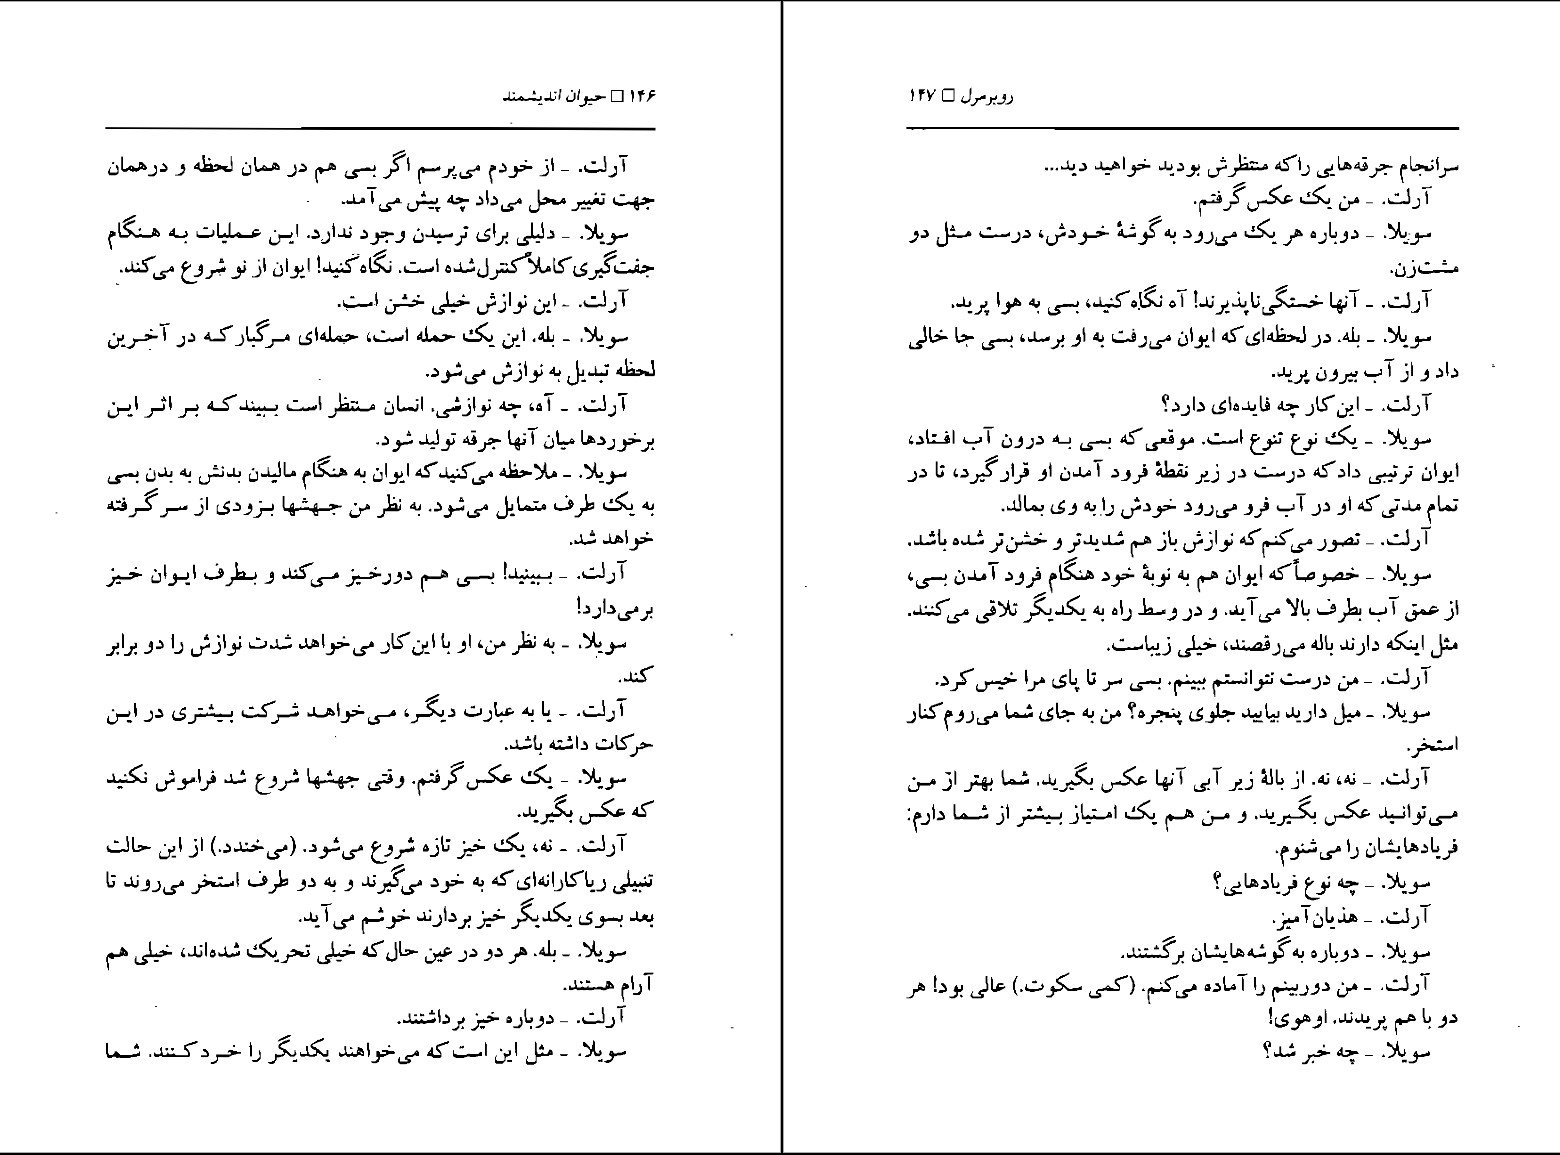 ۱۴۶ □ حیوان اندیشمند
آرلت. ـ از خودم می‌پرسم اگر بسی هم در همان لحظه و درهمان
جهت تغییر محل می‌داد چه پیش می‌آمد.
سویلا. ـ دلیلی برای ترسیدن وجود ندارد. این عملیات به هنگام
جفت‌گیری کاملاً کنترل‌شده است. نگاه کنید! ایوان از نو شروع می‌کند.
آرلت. ـ این نوازش خیلی خشن است.
سویلا. ـ بله. این یک حمله است، حمله‌ای مرگبار که در آخرین
لحظه تبدیل به نوازش می‌شود.
آرلت. ـ آه، چه نوازشی. انسان منتظر است ببیند که بر اثر این
برخوردها میان آنها جرقه تولید شود.
سویلا. ـ ملاحظه می‌کنید که ایوان به هنگام مالیدن بدنش به بدن بسی
به یک طرف متمایل می‌شود. به نظر من جهشها بزودی از سر گرفته
خواهد شد.
آرلت. ـ ببینید! بسی هم دورخیز می‌کند و بطرف ایوان خیز
برمی‌دارد!
سویلا. ـ به نظر من، او با این کار می‌خواهد شدت نوازش را دو برابر
کند.
آرلت. ـ یا به عبارت دیگر، می‌خواهد شرکت بیشتری در این
حرکات داشته باشد.
سویلا. ـ یک عکس گرفتم. وقتی جهشها شروع شد فراموش نکنید
که عکس بگیرید.
آرلت. ـ نه، یک خیز تازه شروع می‌شود. (می‌خندد.) از این حالت
تنبیلی ریاکارانه‌ای که به خود می‌گیرند و به دو طرف استخر می‌روند تا
بعد بسوی یکدیگر خیز بردارند خوشم می‌آید.
سویلا. ـ بله. هر دو در عین حال که خیلی تحریک شده‌اند، خیلی هم
آرام هستند.
آرلت. ـ دوباره خیز برداشتند.
سویلا. ـ مثل این است که می‌خواهند یکدیگر را خرد کنند. شما
روبر مرل □ ۱۴۷
سرانجام جرقه‌هایی را که منتظرش بودید خواهید دید...
آرلت. ـ من یک عکس گرفتم.
سویلا. ـ دوباره هر یک می‌رود به گوشهٔ خودش، درست مثل دو
مشت‌زن.
آرلت. ـ آنها خستگی‌ناپذیرند! آه نگاه کنید، بسی به هوا پرید.
سویلا. ـ بله. در لحظه‌ای که ایوان می‌رفت به او برسد، بسی جا خالی
داد و از آب بیرون پرید.
آرلت. ـ این کار چه فایده‌ای دارد؟
سویلا. ـ یک نوع تنوع است. موقعی که بسی به درون آب افتاد،
ایوان ترتیبی داد که درست در زیر نقطهٔ فرود آمدن او قرار گیرد، تا در
تمام مدتی که او در آب فرو می‌رود خودش را به وی بمالد.
آرلت. ـ تصور می‌کنم که نوازش باز هم شدیدتر و خشن‌تر شده باشد.
سویلا. ـ خصوصاً که ایوان هم به نوبهٔ خود هنگام فرود آمدن بسی،
از عمق آب بطرف بالا می‌آید. و در وسط راه به یکدیگر تلاقی می‌کنند.
مثل اینکه دارند باله می‌رقصند، خیلی زیباست.
آرلت. ـ من درست نتوانستم ببینم. بسی سر تا پای مرا خیس کرد.
سویلا. ـ میل دارید بیایید جلوی پنجره؟ من به جای شما می‌روم کنار
استخر.
آرلت. ـ نه، نه. از بالهٔ زیر آبی آنها عکس بگیرید. شما بهتر از من
می‌توانید عکس بگیرید. و من هم یک امتیاز بیشتر از شما دارم:
فریادهایشان را می‌شنوم.
سویلا. ـ چه نوع فریادهایی؟
آرلت. ـ هذیان‌آمیز.
سویلا. ـ دوباره به گوشه‌هایشان برگشتند.
آرلت. ـ من دوربینم را آماده می‌کنم. (کمی سکوت.) عالی بود! هر
دو با هم پریدند. اوهوی!
سویلا. ـ چه خبر شد؟